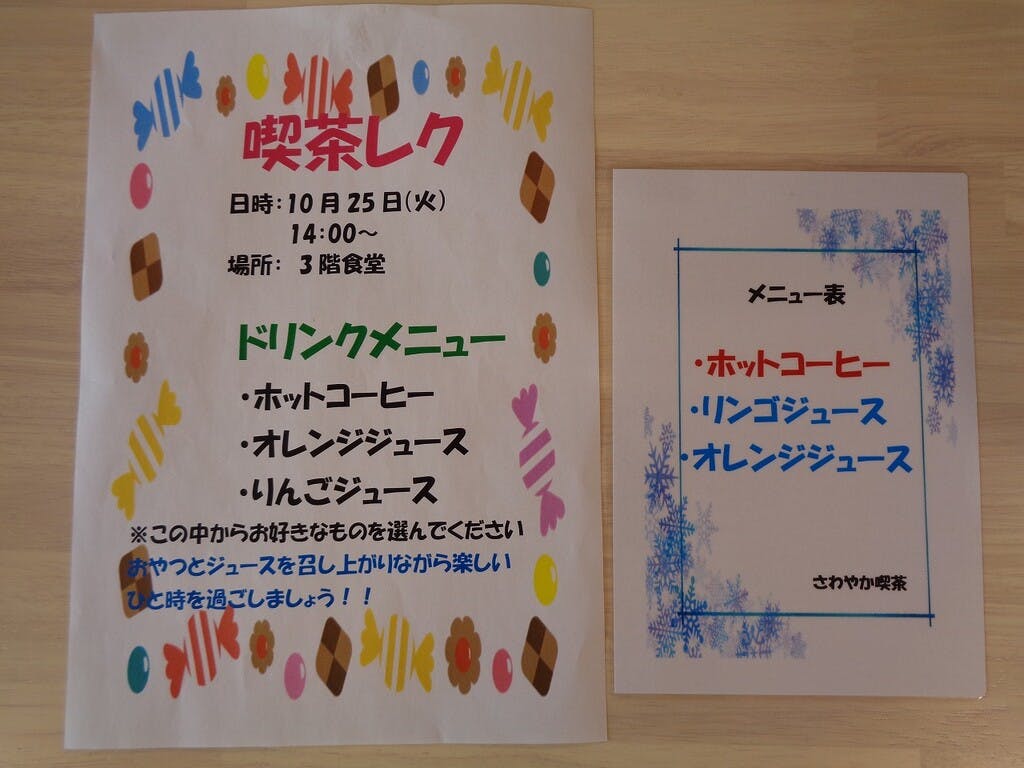 喫茶レク
日時：10月25日（火）
14：00～
場所： 3階食堂
ドリンクメニュー
・ホットコーヒー
・オレンジジュース
・りんごジュース
※この中からお好きなものを選んでください
おやつとジュースを召し上がりながら楽しい
ひと時を過ごしましょう！！
メニュー表
・ホットコーヒー
・リンゴジュース
・オレンジジュース
さわやか喫茶